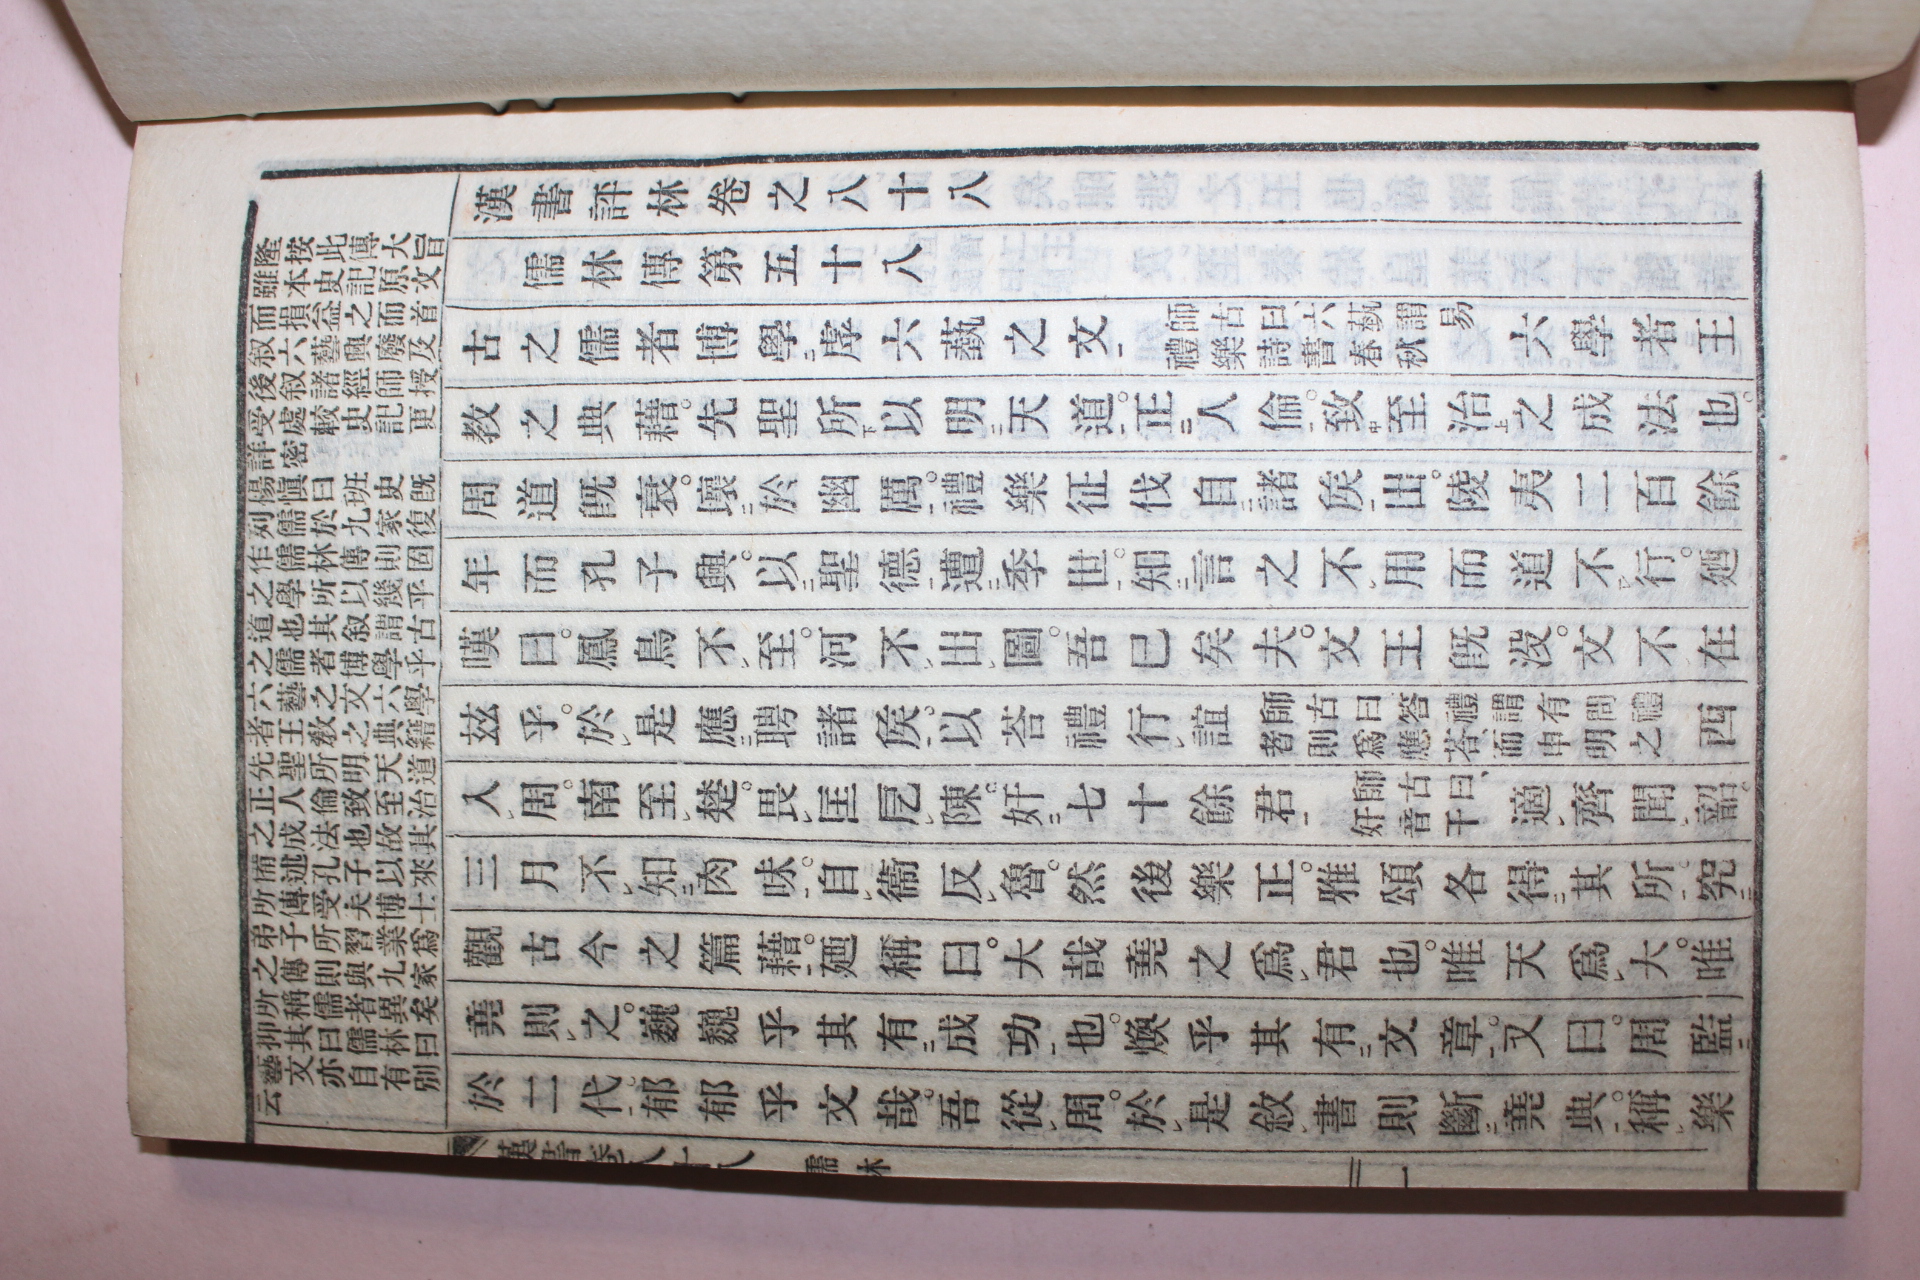 隆按此傳大旨
雖本史記原文
而損益之而首
叙六藝興廢及
後叙諸經師授
受處較史記更
詳密
楊愼曰班史旣
列儒於九家復
作儒林傳則固
之學所以幾乎
道也其叙謂古
之儒者博學乎
六藝之文六學
者王敎之典籍
先聖所明天道
正人倫致至治
之成法也故其
備述孔子以來
所傳受夫博士
弟子所習業爲
之傳則與九家
所稱儒者異矣
抑其曰儒林曰
藝文亦自有別
云
漢書評林卷之八十八
儒林傳第五十八
古之儒者博學虖六藝之文師古曰、六藝謂易禮樂詩書春秋六學者王
教之典藉。先聖所以明天道。正人倫。致至治之成法也。
周道旣衰。壞於幽厲。禮樂征伐自諸侯出。陵夷二百餘
年而孔子興。以聖德遭季世。知言之不用而道不行。廼
嘆曰。鳳鳥不至。河不出圖。吾已矣夫。文王旣没。文不在
玆乎。於是應聘諸侯。以荅禮行誼師古曰答禮謂有問禮者則爲應荅、而申明之西
入周。南至楚。畏匡戹陳。奸七十餘君師古曰、奸音干適齊聞韶。
三月不知肉味。自衞反魯。然後樂正。雅頌各得其所。究
觀古今之篇藉。廼稱曰。大哉堯之爲君也。唯天爲大。唯
堯則之。巍巍乎其有成功也。煥乎其有文章。又曰。周監
於二代。郁郁乎文哉。吾從周。於是敘書則斷堯典。稱樂
漢書卷八十八　儒林　一